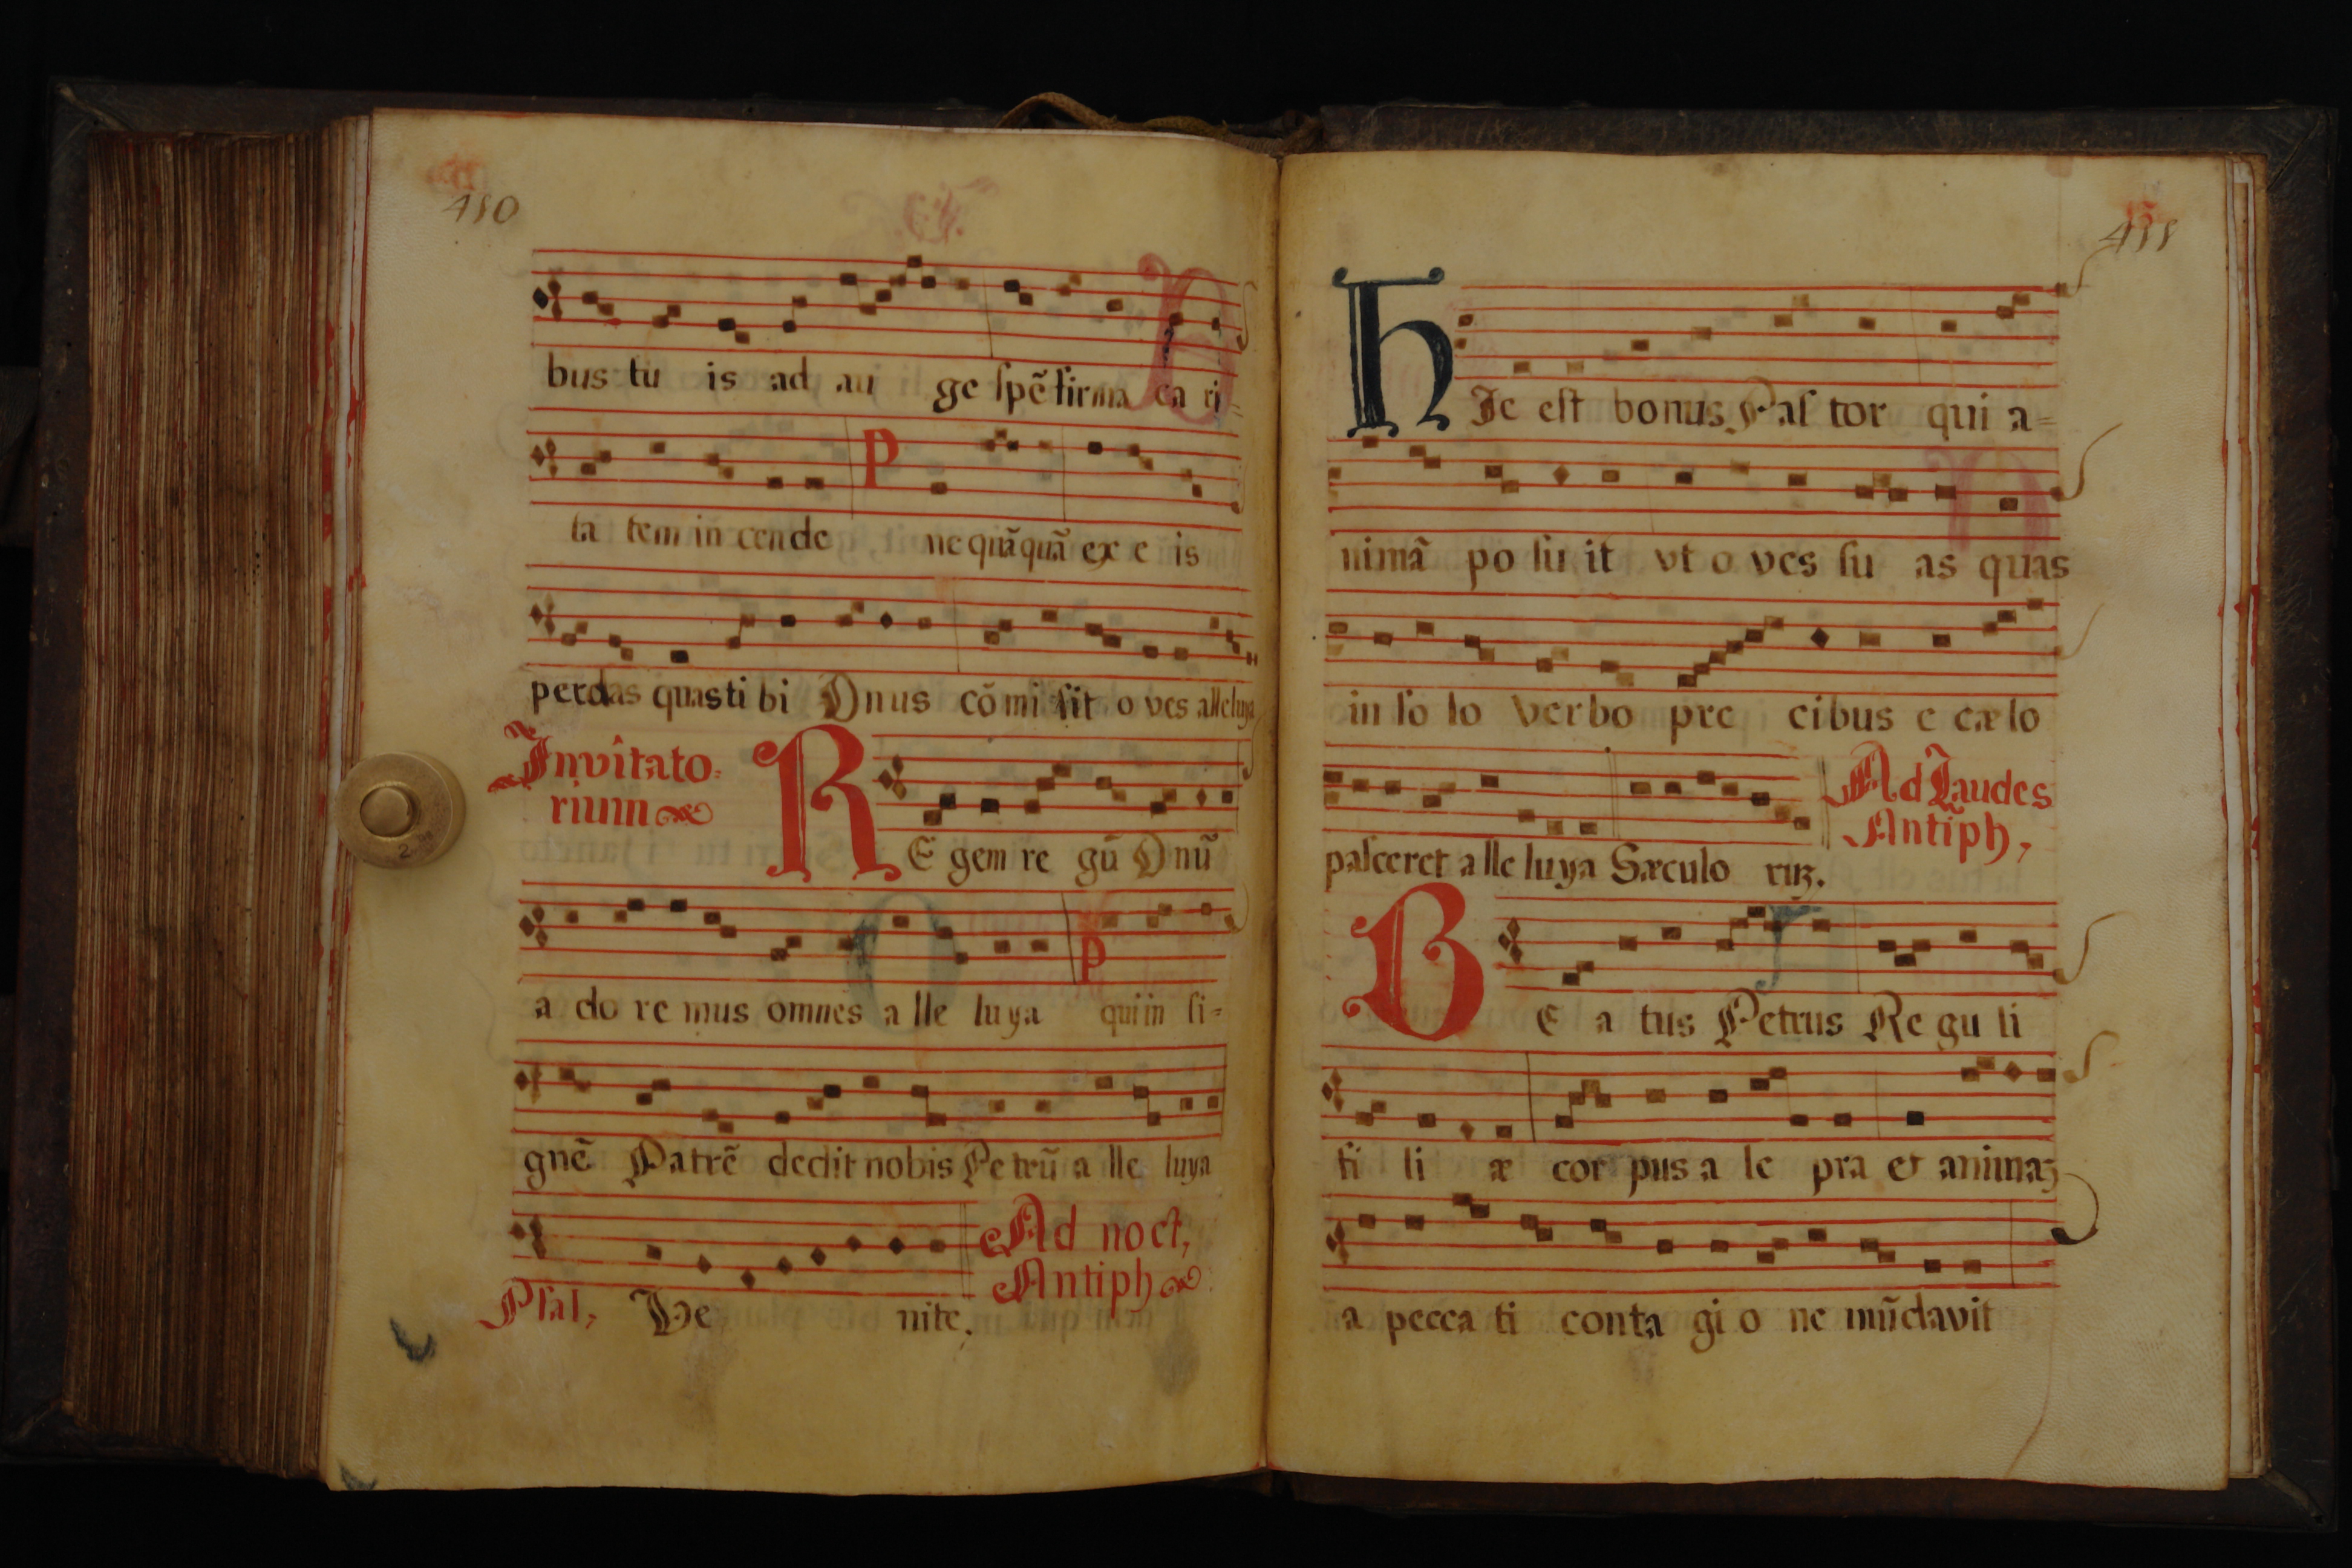 410
bus tu is ad au ge spẽ firma ca ri-
ta tem in cende P ne quãquã ex e is
perdas quas ti bi Dnus cõ mi sit o ves alleluya
Invitato-
rium
RE gem re gũ Dnũ
a do re mus omnes a lle luya P qui in si-
gnẽ Patrẽ dedit nobis Pe trũ a lle luya
Ad noct,
Antiph
Psal, Ve nite.
411
HIc est bonus Pas tor qui a-
nimã po su it vt o ves su as quas
in so lo verbo pre cibus e cælo
pasceret a lle luya Sæculo rũ.
Ad Laudes
Antiph,
BE a tus Petrus Re gu li
fi li æ cor pus a le pra et animaȝ
a pecca ti conta gi o ne mũdavit